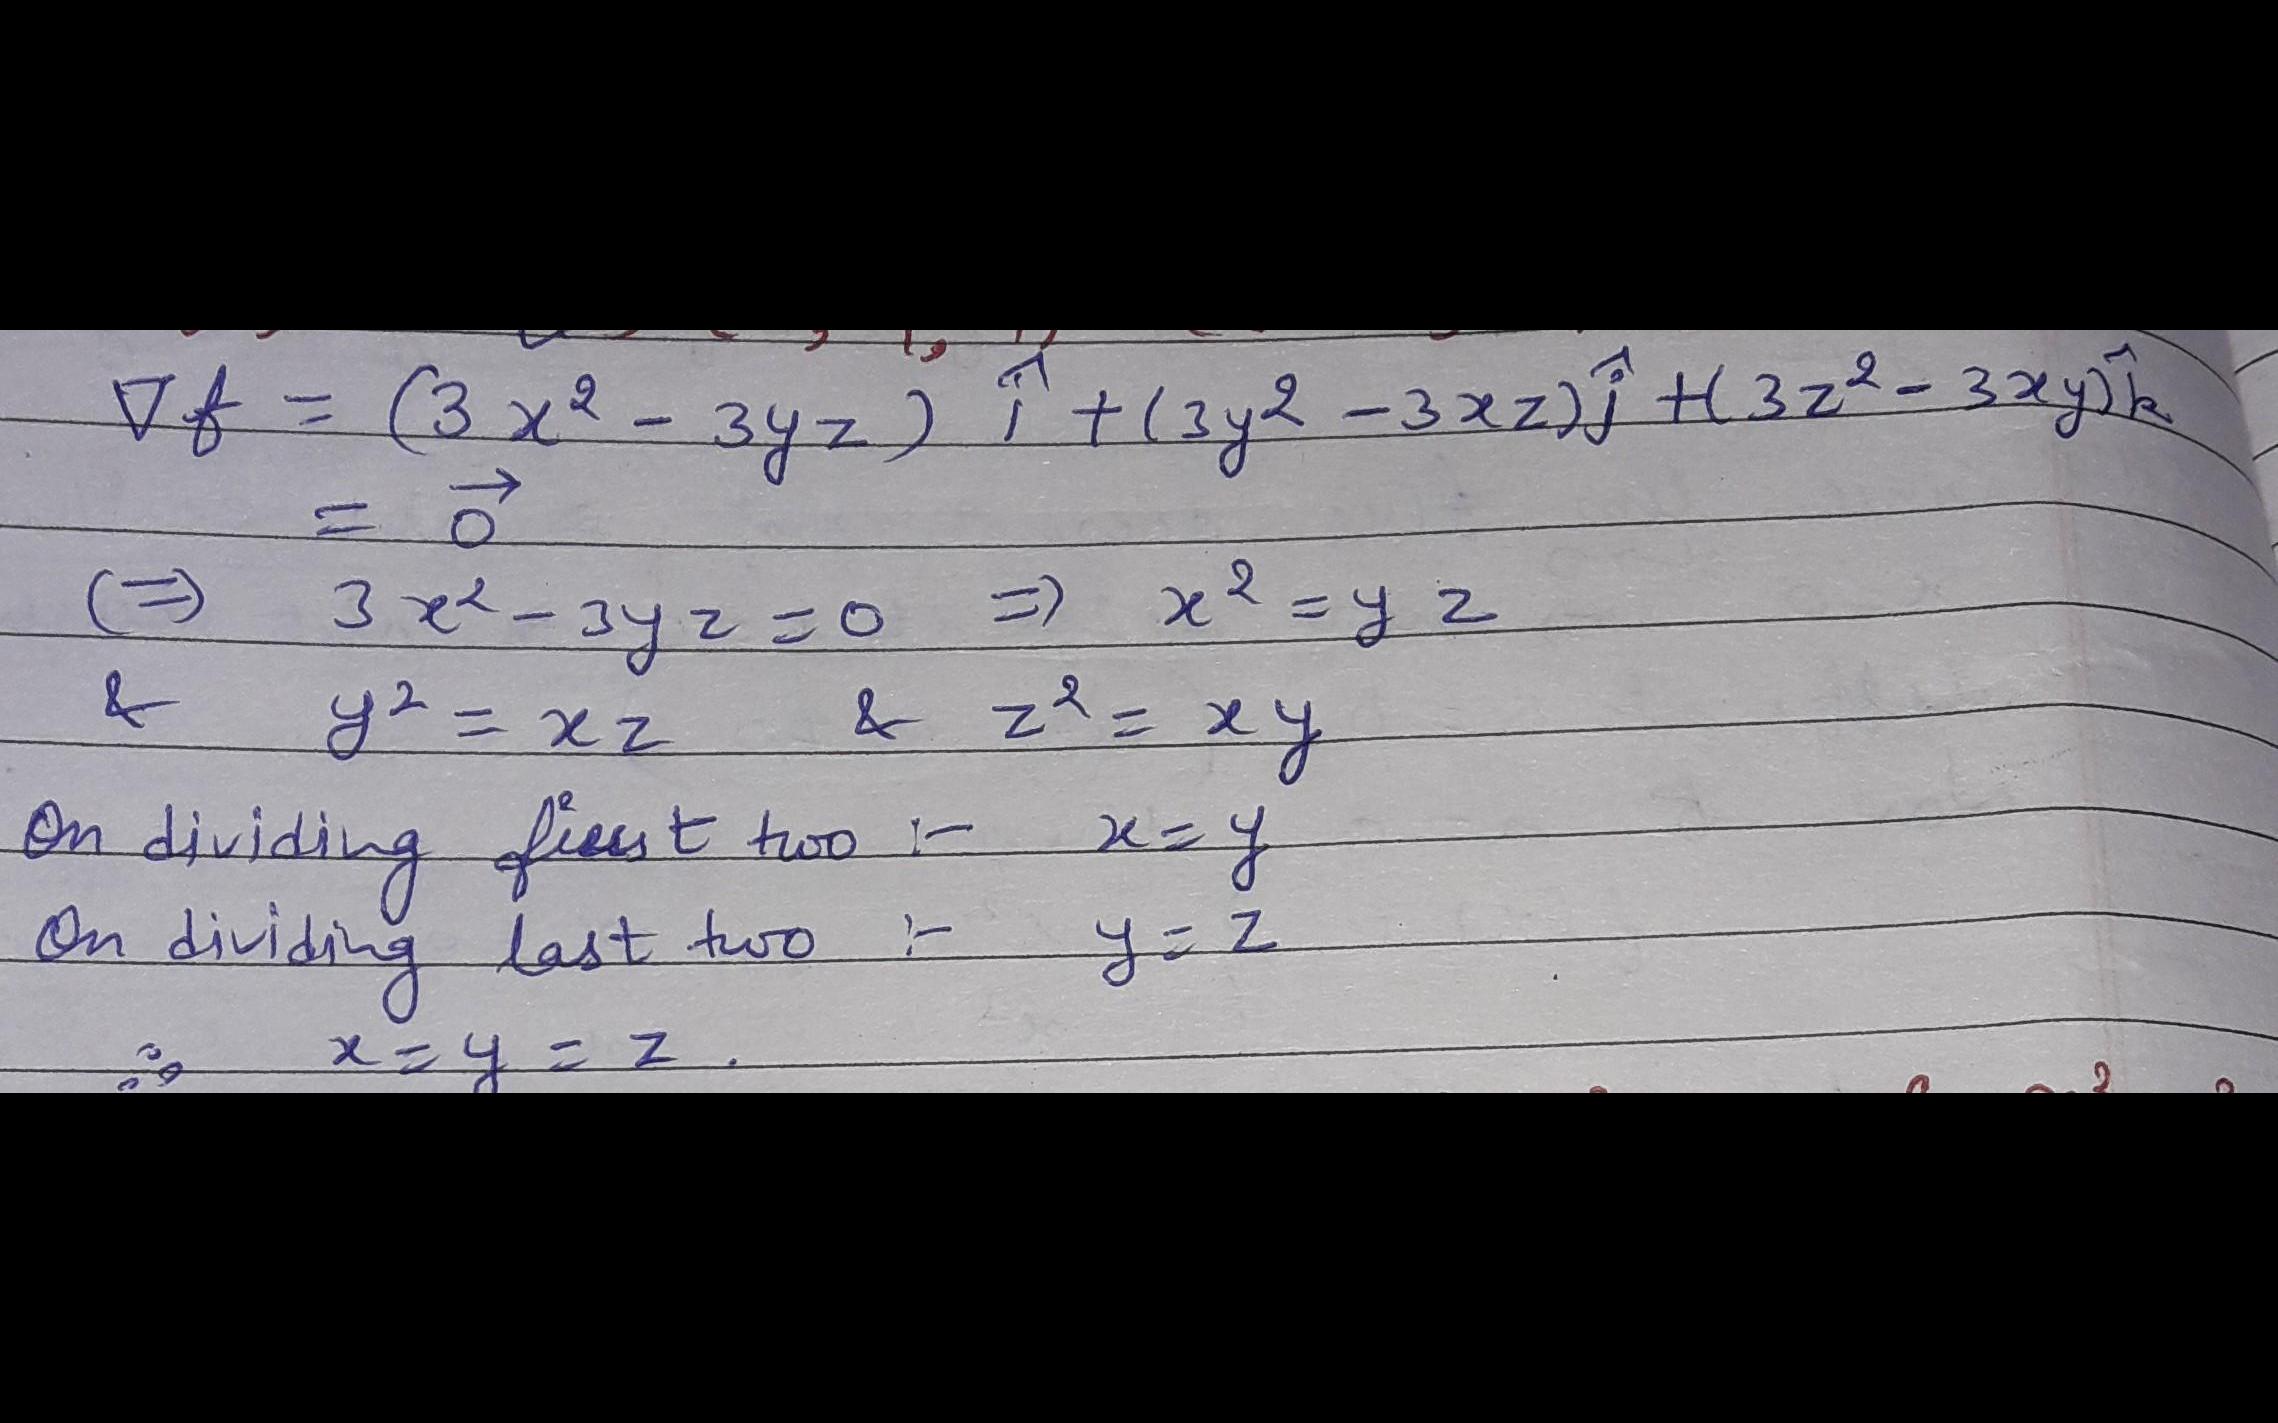 ∇f = (3x² - 3yz) î + (3y² - 3xz) ĵ + (3z² - 3xy) k̂
= 0⃗
(⇒) 3x² - 3yz = 0 ⇒ x² = yz
& y² = xz & z² = xy
On dividing first two :- x = y
On dividing last two :- y = z
∴ x = y = z .